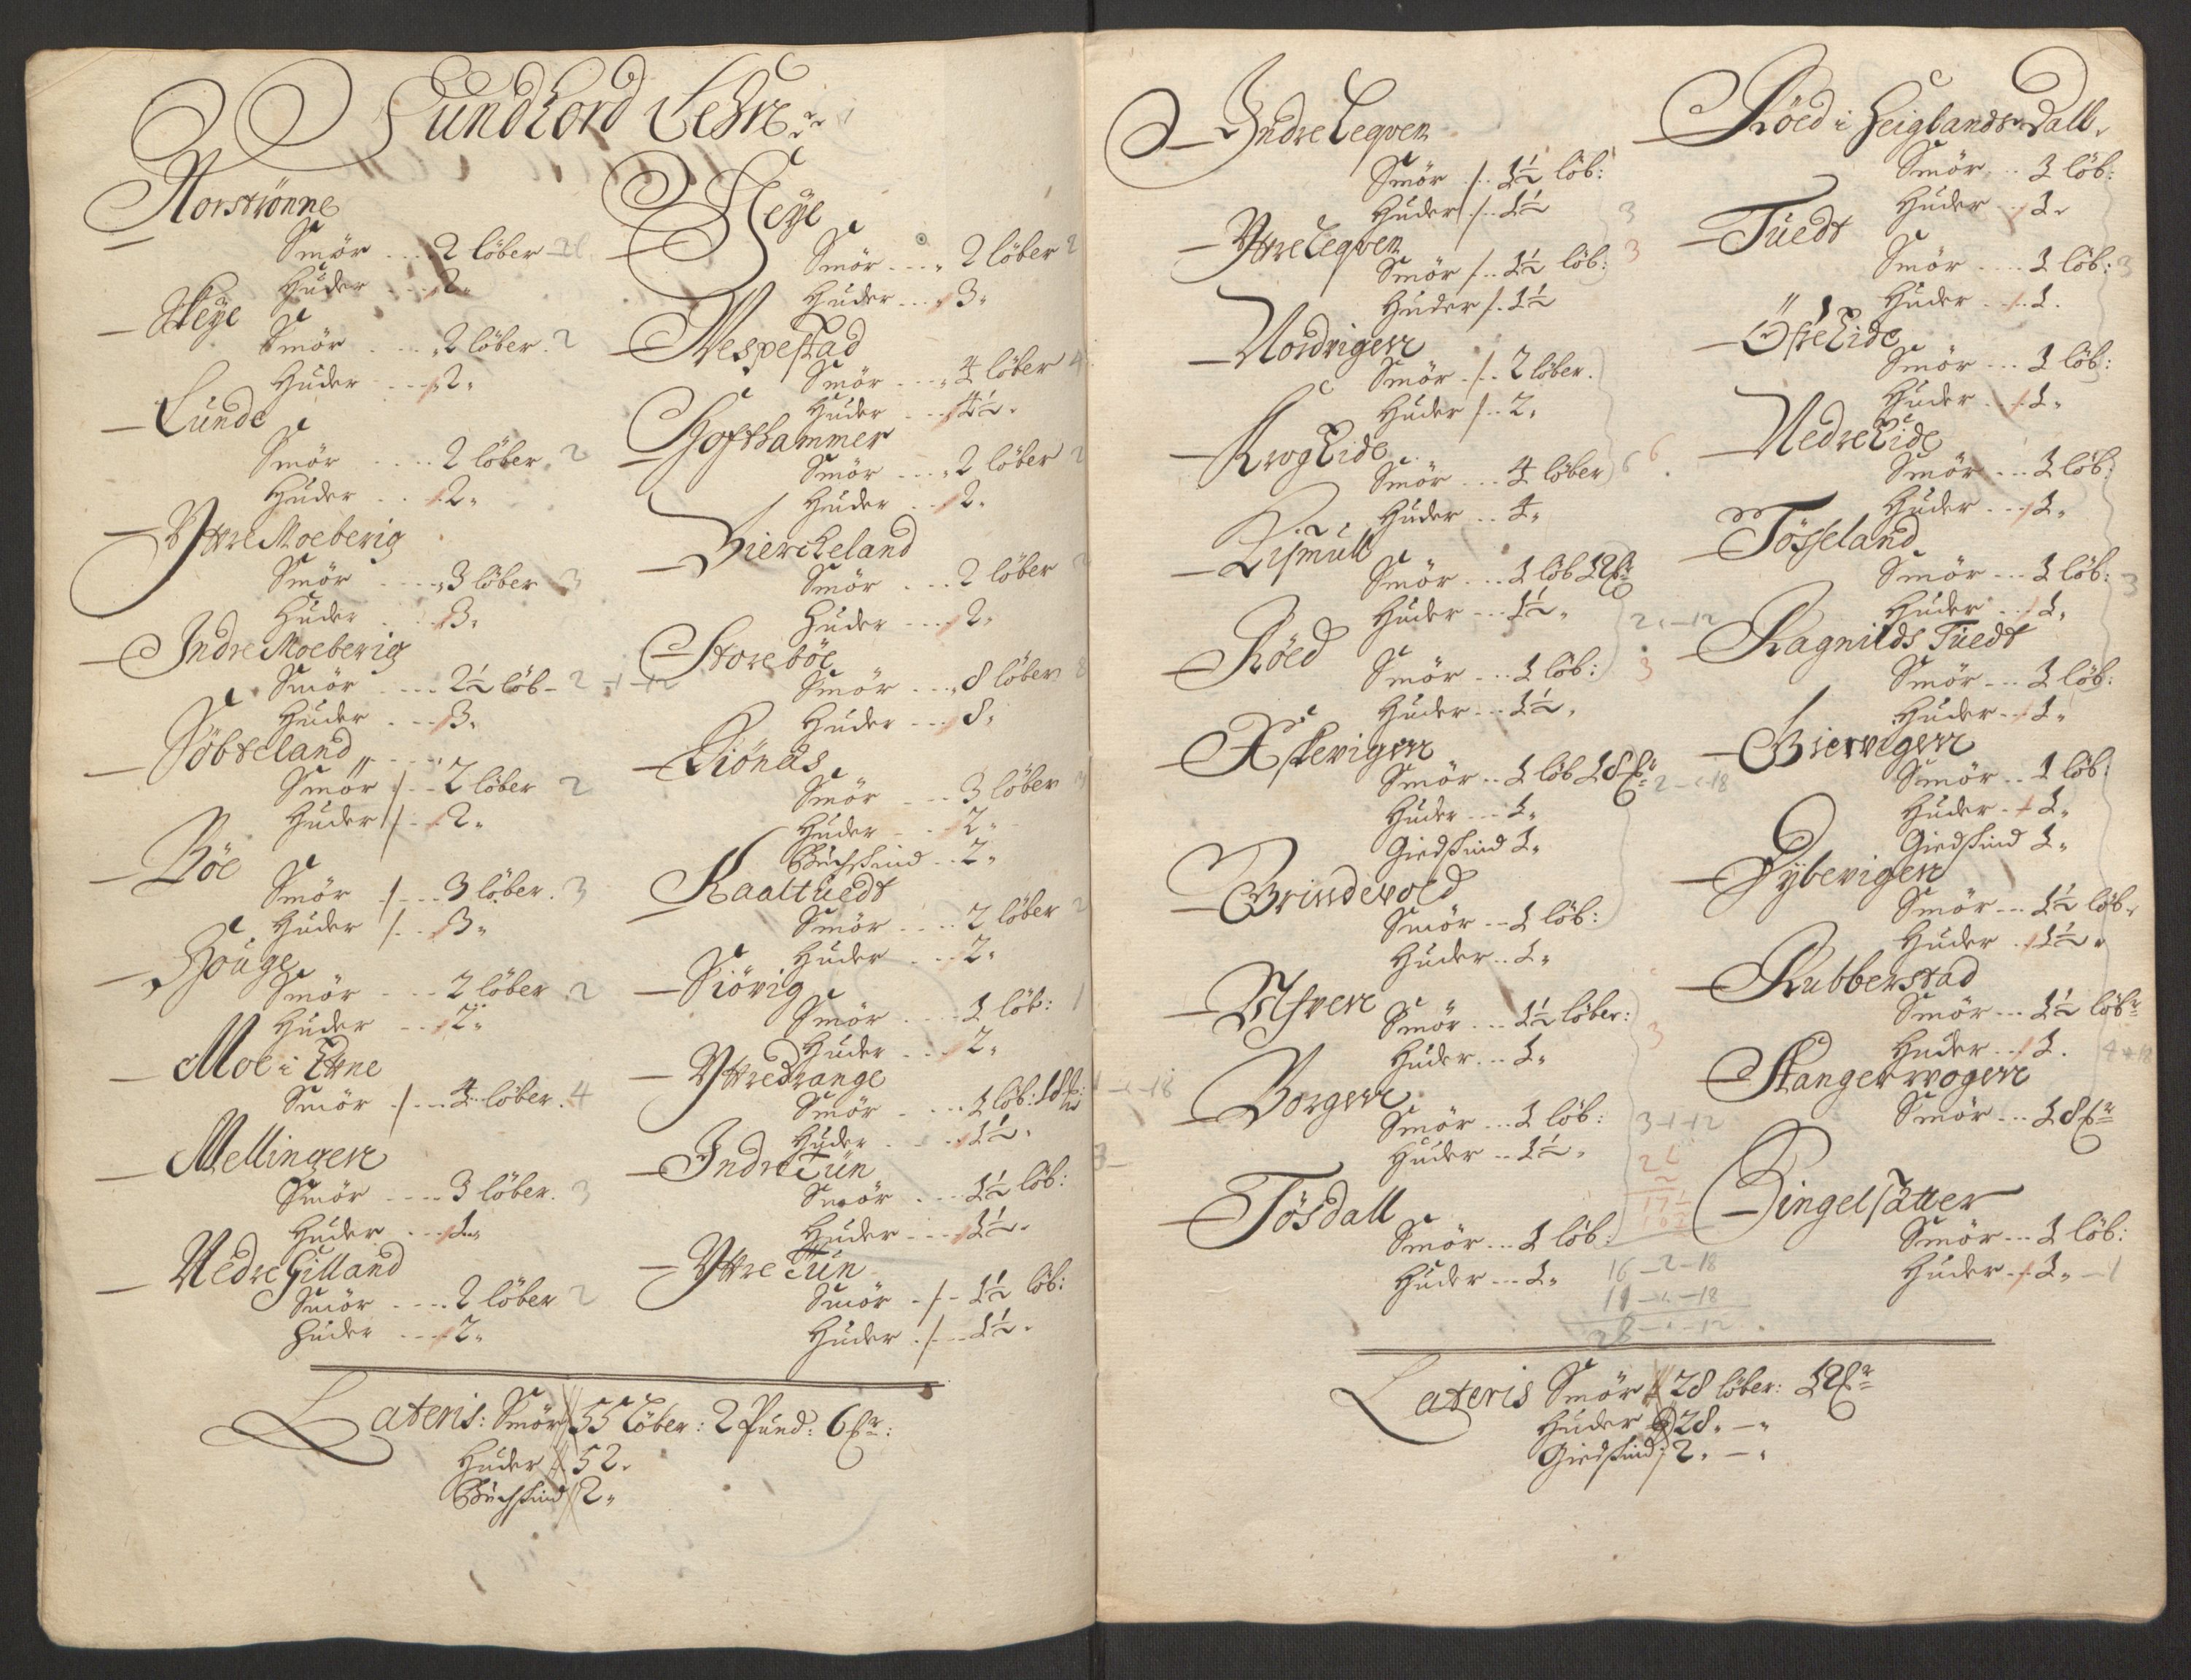 Sundhord Lehn
Norstrønne
Smör .... 2 löber
Huder .... 2„
Skeye
Smör .... 2 löber. 2
Huder .... 2„
Lunde
Smör .... 2 löber. 2
Huder .... 2„
Yttre Moeberig
Smör .... 3 löber 3
Huder .... 3„
Indre Moeberig
Smör .... 2½ löb - 2 -1-12
Huder .... 3„
Söbteland
Smör /. .. 2 löber 2
Huder /. .. 2„
Böe
Smör /. .. 3 löber. 3
Huder /. .. 3„
Houge
Smör .... 2 löber. 2
Huder .... 2„
Moe i Etne
Smör /. .. 4 löber. 4
Mellingen
Smör .... 3 löber. 3
Huder .... 1„
Nedre Gilland
Smör .... 2 löber 2
Huder .... 2„
Heye
Smör .... 2 löber 2
Huder .... 3„
Wespestad
Smör .... 4 löber 4
Huder .... 4½„
Hofthammer
Smör .... 2 löber 2
Huder .... 2„
Biercheland
Smör .... 2 löber
Huder .... 2„
Storeböe
Smör .... 8 löber 8
Huder .... 8„
Kiönaas
Smör .... 3 löber 3
Huder .... 2„
Buchskind .. 2„
Kaaltuedt
Smör .... 2 löber 2
Huder .... 2„
Siövig
Smör .... 1 löb: 1
Huder .... 2„
Yttre Drange
Smör .... 1 löb: 18 1-1-18
Huder .... 1½„
Indre Tun
Smör .... 1½ löb: 3-
Huder .... 1½„
Yttre Tun
Smör ./. 1½ löb:
Huder ./. .. 1½„
Lateris: Smör 55 Löber: 2 Pund: 6
Huder 52„
Buchskind 2„
Indre Leqven
Smör /. 1½ löb:
Huder /. 1½ 3
Yttre Leqven
Smör /. 1½ löb: 3
Huder /. 1½
Nordvigen
Smör /. 2 löber.
Huder /. 2„
Krog Eide
Smör ... 4 löber 6 6
Huder .. 4„
Lismull
Smör ... 1 löb 12
Huder ... 1½„ 2-1-12
Röed
Smör ... 1 löb: 3
Huder ... 1½„
Askevigen
Smör .. 1 löb 18 2-1-18
Huder ... 1„
Giedskind 1„
Brindevold
Smör .. 1 löb:
Huder .. 1„
Alsven
Smör ... 1½ löber: 3
Huder ... 1„
Borgen
Smör ... 1 löb: 3-1-12
Huder .. 1½„
Tösdall
Smör ... 1 löb.
Huder ... 1„
16-2-18
11-1-18
28-1-12
Lateris Smör 28 löber: 12
Huder 28„ -„
Giedskind 2„ -„
Röed i Heiglands Dall
Smör ... 1 löb:
Huder ... 1„
Tuedt
Smör .... 1 löb: 3
Huder ... 1.
Östre Eide
Smör ... 1 löb:
Huder ... 1„
Nedre Eide
Smör ... 1 löb:
Huder ... 1„
Tösseland
Smör ... 1 löb: 3
Huder ... 1„
Ragnilds Tuedt
Smör ... 1 löb:
Huder .. 1„
Biervigen
Smör .. 1 löb:
Huder .. 1„
Giedskind 1„
Dybevigen
Smör ... 1½ löb„
Huder .. 1½„
Rubberstad
Smör ... 1½ löb
Huder ... 1. 4-12
Stangervogen
Smör ... 18
Lingelsætter
Smör ... 1 löb:
Huder .. 1„ - 1